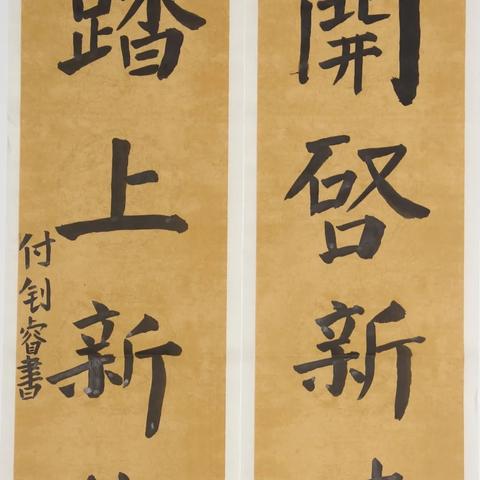 開啓新
踏上新
付钊睿書